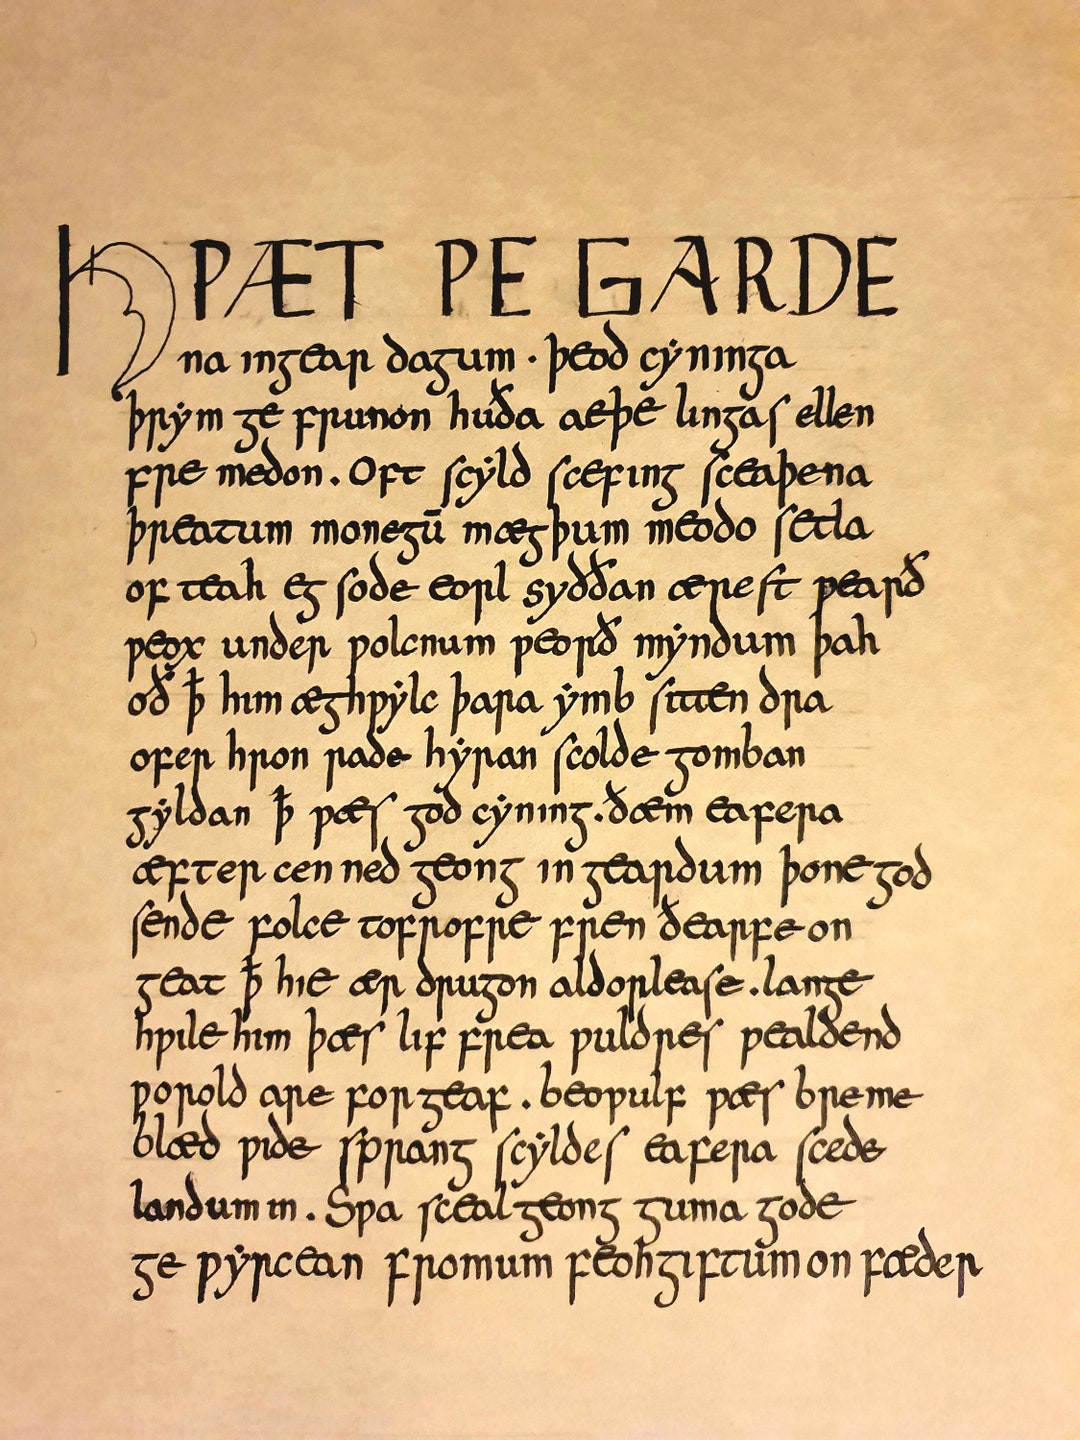 HǷÆT ǷE GARDE
na ingear dagum · þeod cẏninga
þrẏm ge frunon huða aeþe lingas ellen
fre medon. Oft scẏld scefing sceaþena
þreatum monegū mægþum meodo setla
of teah eg sode eorl syððan ærest ƿearð
ƿeox under ƿolcnum ƿeorð mẏndum þah
oð ꝥ him æghƿẏlc þara ẏmb sitten dra
ofer hron rade hẏran scolde gomban
gẏldan ꝥ ƿæs god cẏning. ðæm eafera
æfter cen ned geong in geardum þone god
sende folce tofrofre fren ðearfe on
geat ꝥ hie ær drugon aldorlease. lange
hƿile him þæs lif frea ƿuldres ƿealdend
ƿorold are for geaf. beoƿulf ƿæs breme
blæd ƿide sprang scẏldes eafera scede
landum in. Sƿa sceal geong guma gode
ge ƿẏrcean fromum feohgiftum on fæder